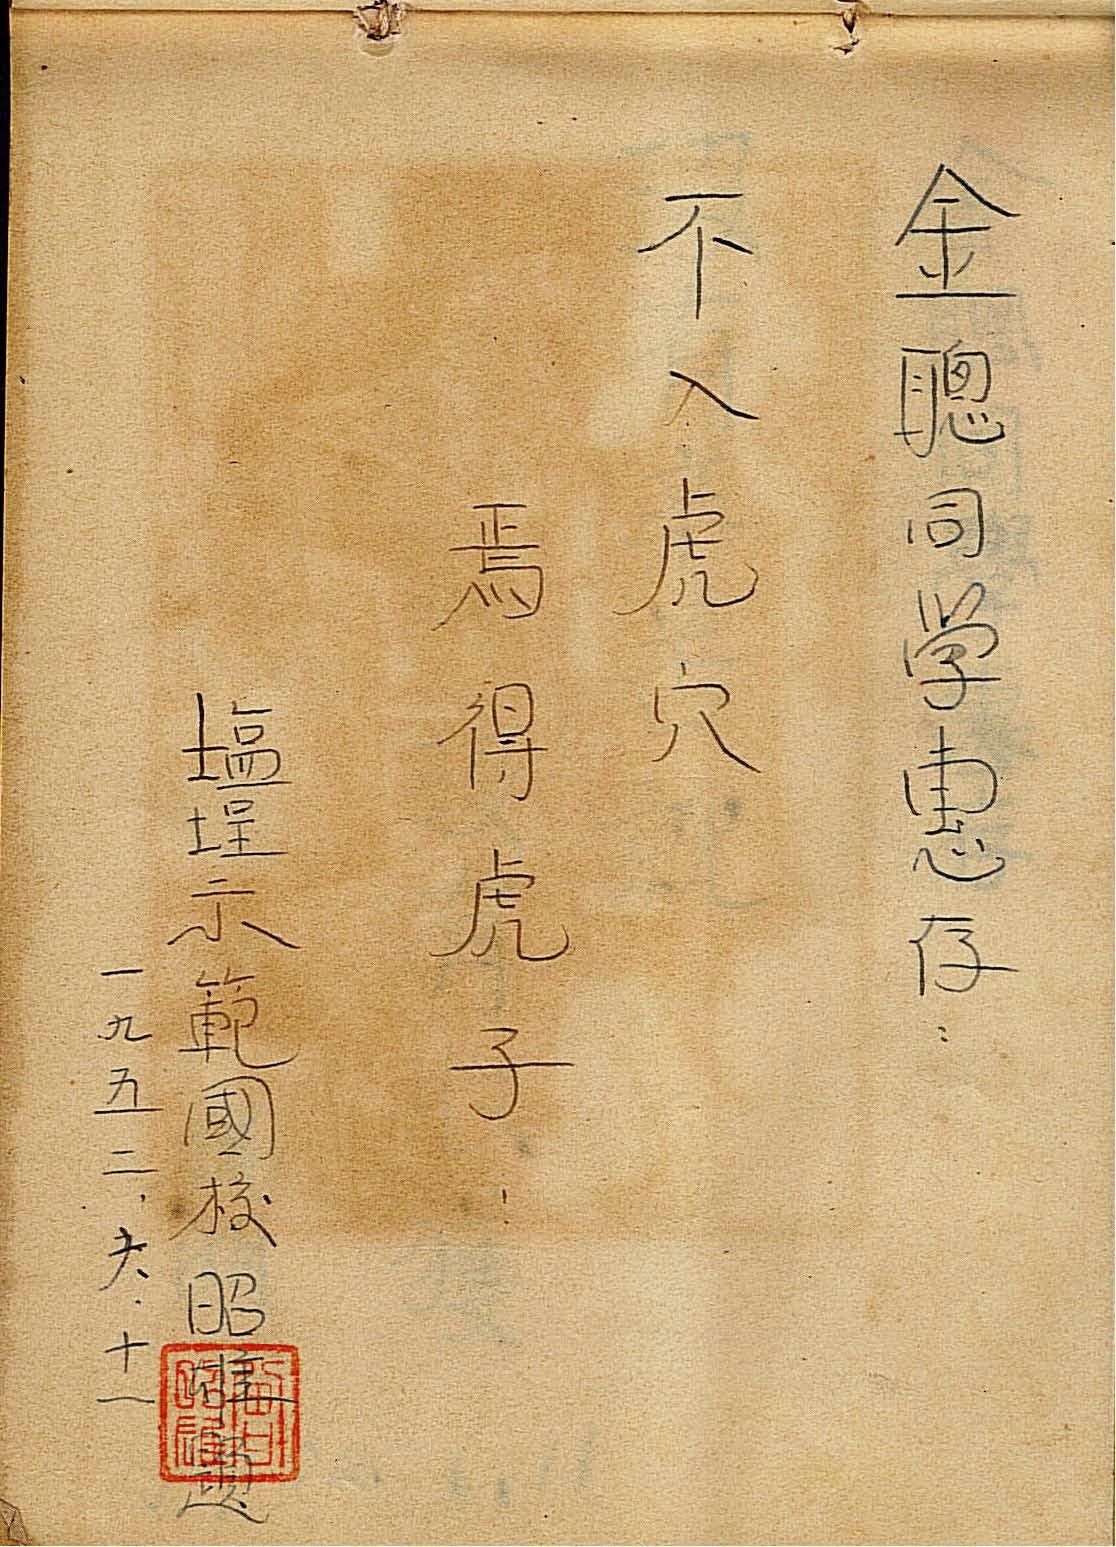 金聰同学惠存：
不入虎穴．
焉得虎子．
塩埕示範國校昭
一九五二．六．十一